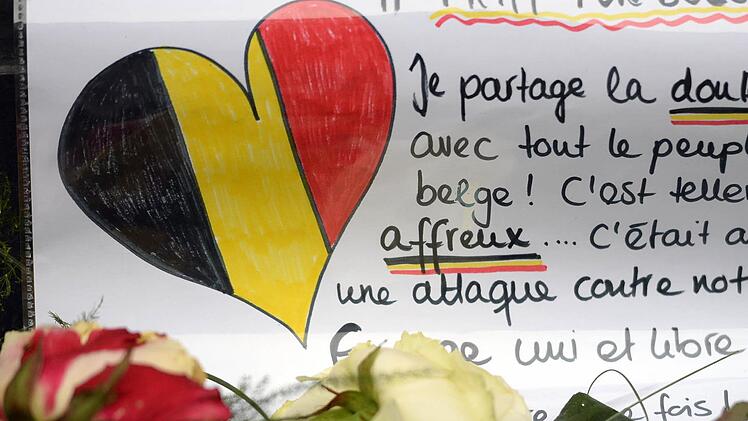 Je partage la doul
avec tout le peupl
belge ! C'est telle
affreux .... c'était a
une attaque contre not
uni et libre
fois